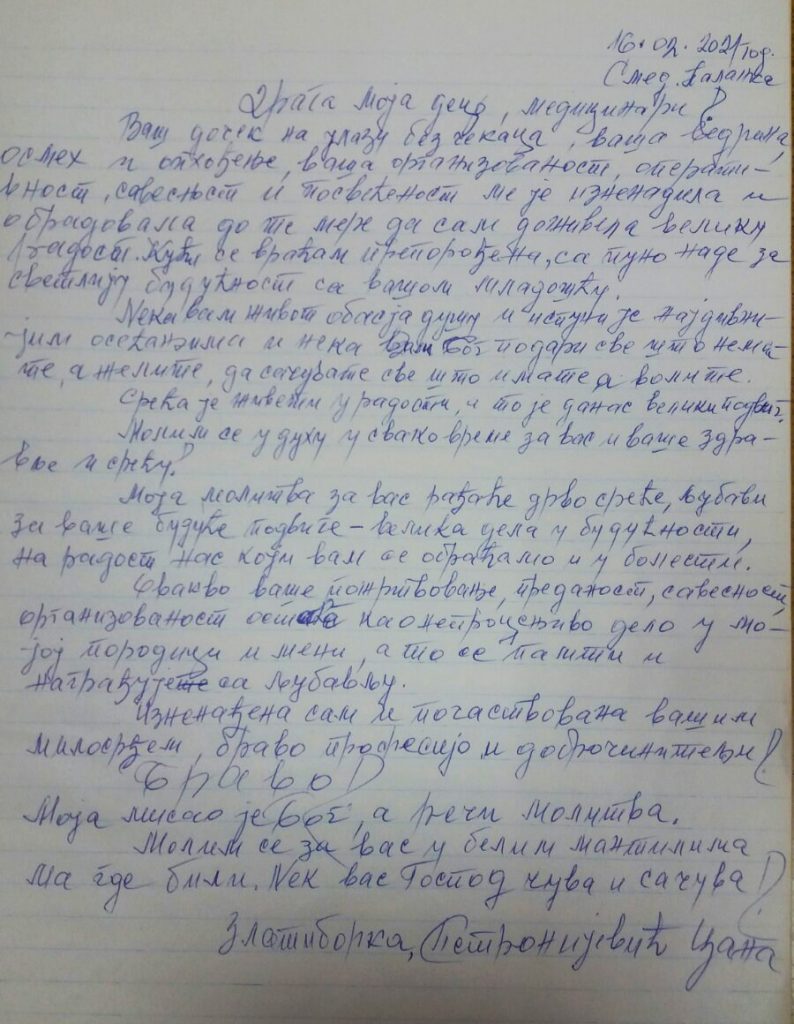 16.02.2021 год.
Смед. Паланка
Драга моја децо, медицинари!
Ваш дочек на улазу без чекања, ваша ведрина,
осмех и опхођење, ваша организованост, операти-
вност, савесност и посвећеност ме је изненадила и
обрадовала до те мере да сам доживела велику
радост. Кући се враћам препорођена, са пуно наде за
светлију будућност са вашом младошћу.
Nека вам живот обасја душу и испуни је најдивни-
-јим осећањима и нека вам Бог подари све што нема-
те, а желите, да сачувате све што имате а волите.
Срећа је живети у радости, и то је данас велики подвиг.
Молим се у духу у свако време за вас и ваше здра-
вље и срећу!
Моја молитва за вас рађаће дрво среће, љубави
за ваше будуће подвиге – велика дела у будућности,
на радост нас који вам се обраћамо и у болести.
Овакво ваше пожртвовање, преданост, савесност,
организованост оста као непроцењиво дело у мо-
-јој породици и мени, а то се памти и
награђује са љубављу.
Изненађена сам и почаствована вашим
милосрђем, браво професијо и доброчинитељи!
Браво!
Моја мисао је Бог, а речи молитва.
Молим се за вас у белим мантилима
ма где били. Nек вас Господ чува и сачува!
Златиборка, Петронијевић Цана